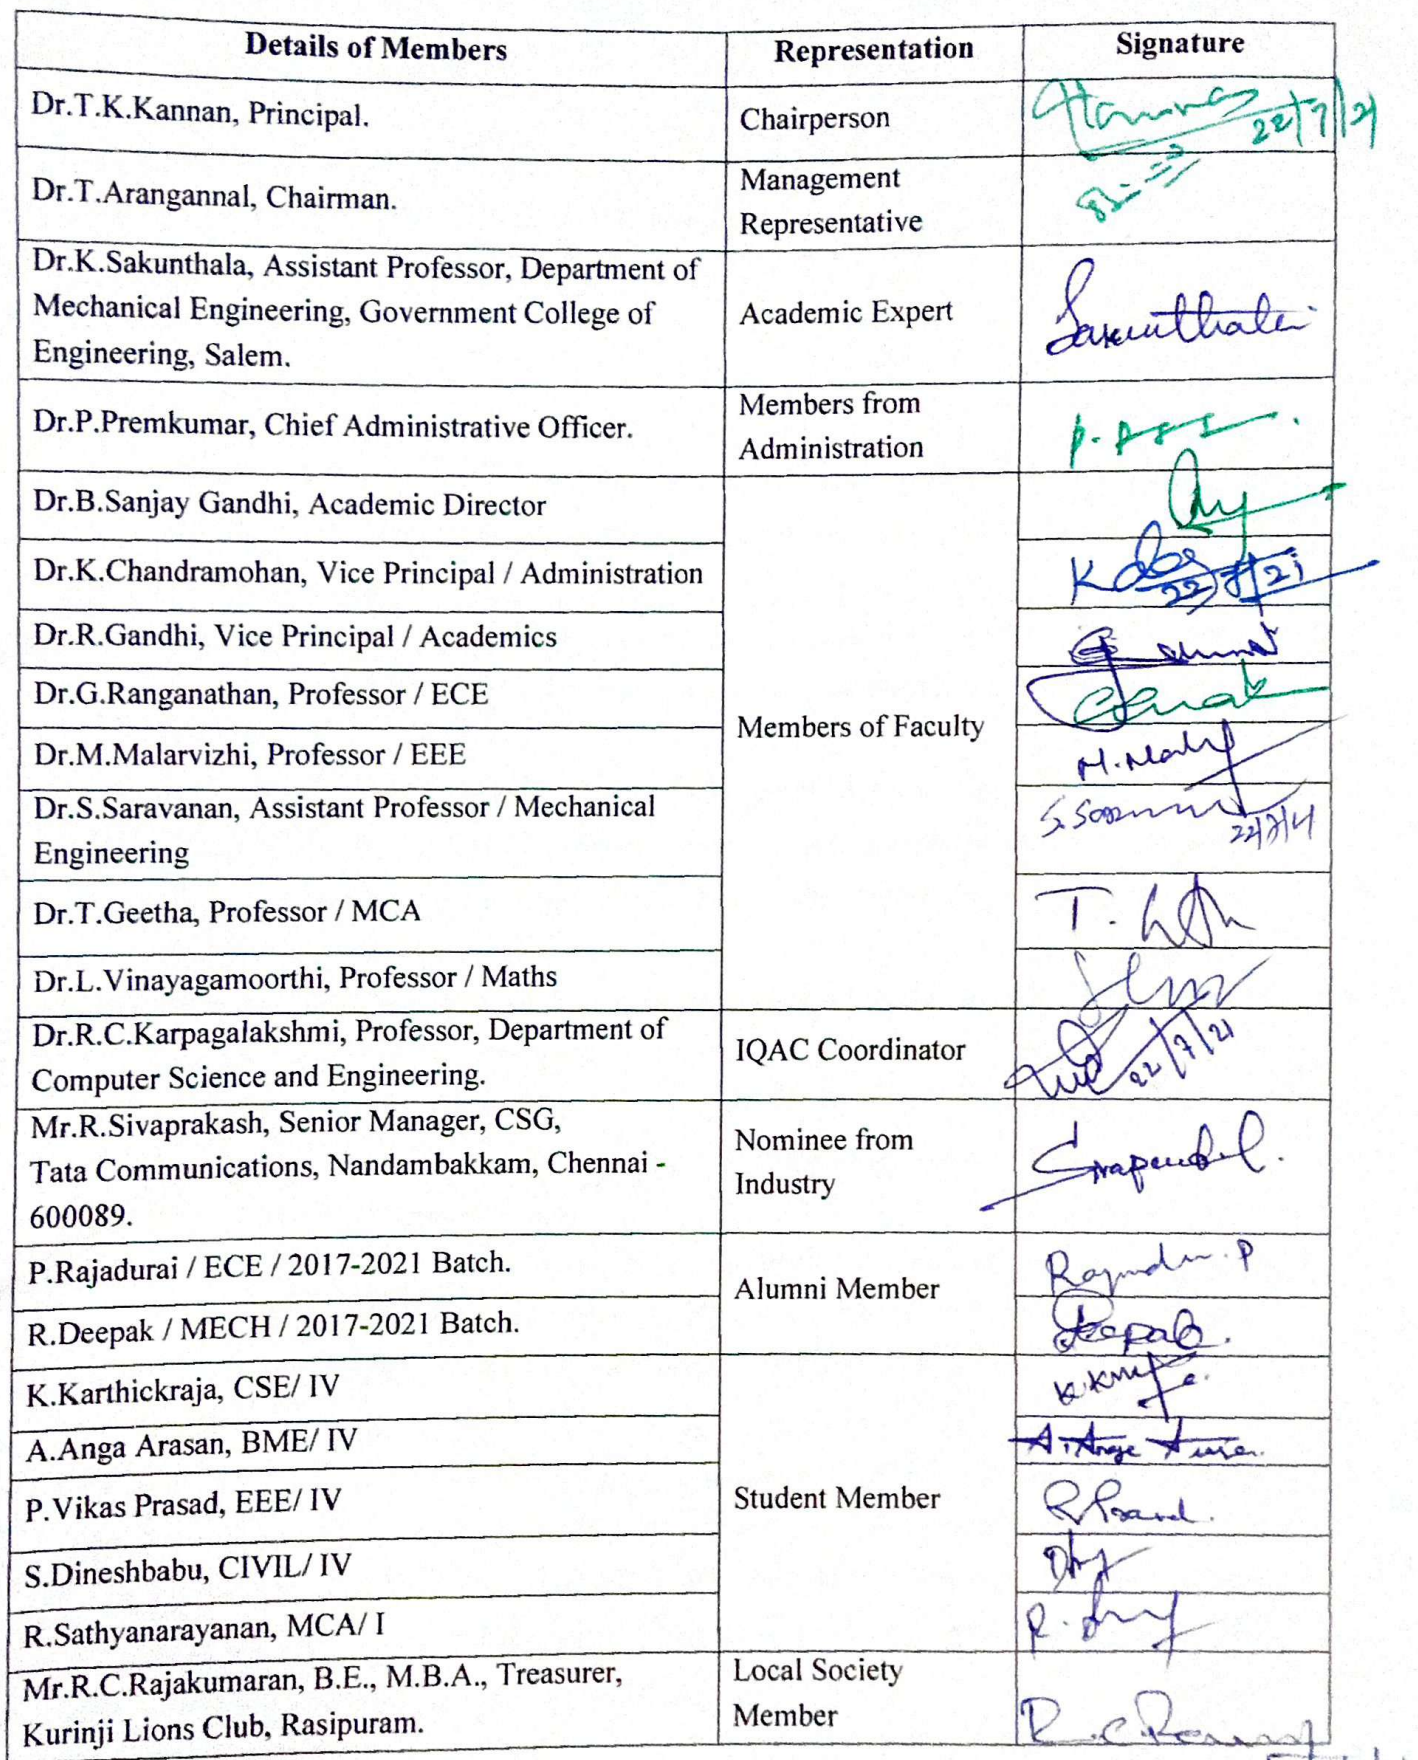 Details of Members Representation Signature
Dr.T.K.Kannan, Principal. Chairperson
22/7/21
Dr.T.Arangannal, Chairman. Management
Representative
Dr.K.Sakunthala, Assistant Professor, Department of
Mechanical Engineering, Government College of
Engineering, Salem.
Academic Expert
Sakunthala
Dr.P.Premkumar, Chief Administrative Officer.
Members from
Administration
Dr.B.Sanjay Gandhi, Academic Director
Dr.K.Chandramohan, Vice Principal / Administration
22/7/21
Dr.R.Gandhi, Vice Principal / Academics
Dr.G.Ranganathan, Professor / ECE
Members of Faculty
Dr.M.Malarvizhi, Professor / EEE
Dr.S.Saravanan, Assistant Professor / Mechanical
Engineering
22/7/21
Dr.T.Geetha, Professor / MCA
Dr.L.Vinayagamoorthi, Professor / Maths
Dr.R.C.Karpagalakshmi, Professor, Department of
Computer Science and Engineering.
IQAC Coordinator
22/7/21
Mr.R.Sivaprakash, Senior Manager, CSG,
Tata Communications, Nandambakkam, Chennai -
600089.
Nominee from
Industry
P.Rajadurai / ECE / 2017-2021 Batch.
Alumni Member
R.Deepak / MECH / 2017-2021 Batch.
Deepak.
K.Karthickraja, CSE/ IV
A.Anga Arasan, BME/ IV
P.Vikas Prasad, EEE/ IV
Student Member
S.Dineshbabu, CIVIL/ IV
R.Sathyanarayanan, MCA/ I
Mr.R.C.Rajakumaran, B.E., M.B.A., Treasurer,
Kurinji Lions Club, Rasipuram.
Local Society
Member